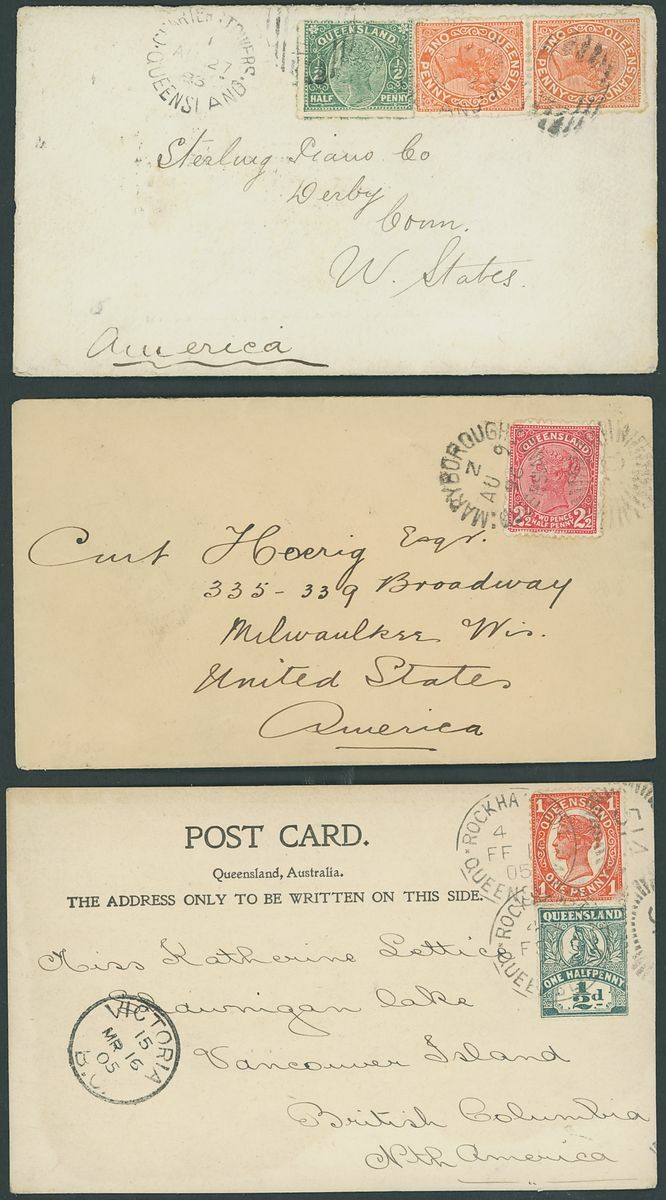 CHARTERS TOWERS
27
93
QUEENSLAND
QUEENSLAND
½ ½
HALF PENNY
QUEENSLAND
ONE PENNY
QUEENSLAND
ONE PENNY
Sterling Piano Co
Derby
Conn.
U. States.
America
MARYBOROUGH
2
AU 9
96
QUEENSLAND
2½ 2½
TWO PENCE
HALF PENNY
Curt Hoerig Esqr.
335-339 Broadway
Milwaulkee Wis.
United States
America
POST CARD.
Queensland, Australia.
THE ADDRESS ONLY TO BE WRITTEN ON THIS SIDE.
ROCKHA
4
FE
05
QUEEN
1 QUEENSLAND 1
1 ONE PENNY 1
ROCK
4
F
QUEE
QUEENSLAND
ONE HALFPENNY
½d
Miss Katherine Lettice
Shawnigan Lake
Vancouver Island
British Columbia
Nth America
VICTORIA
15
MR 16
05
B.C.